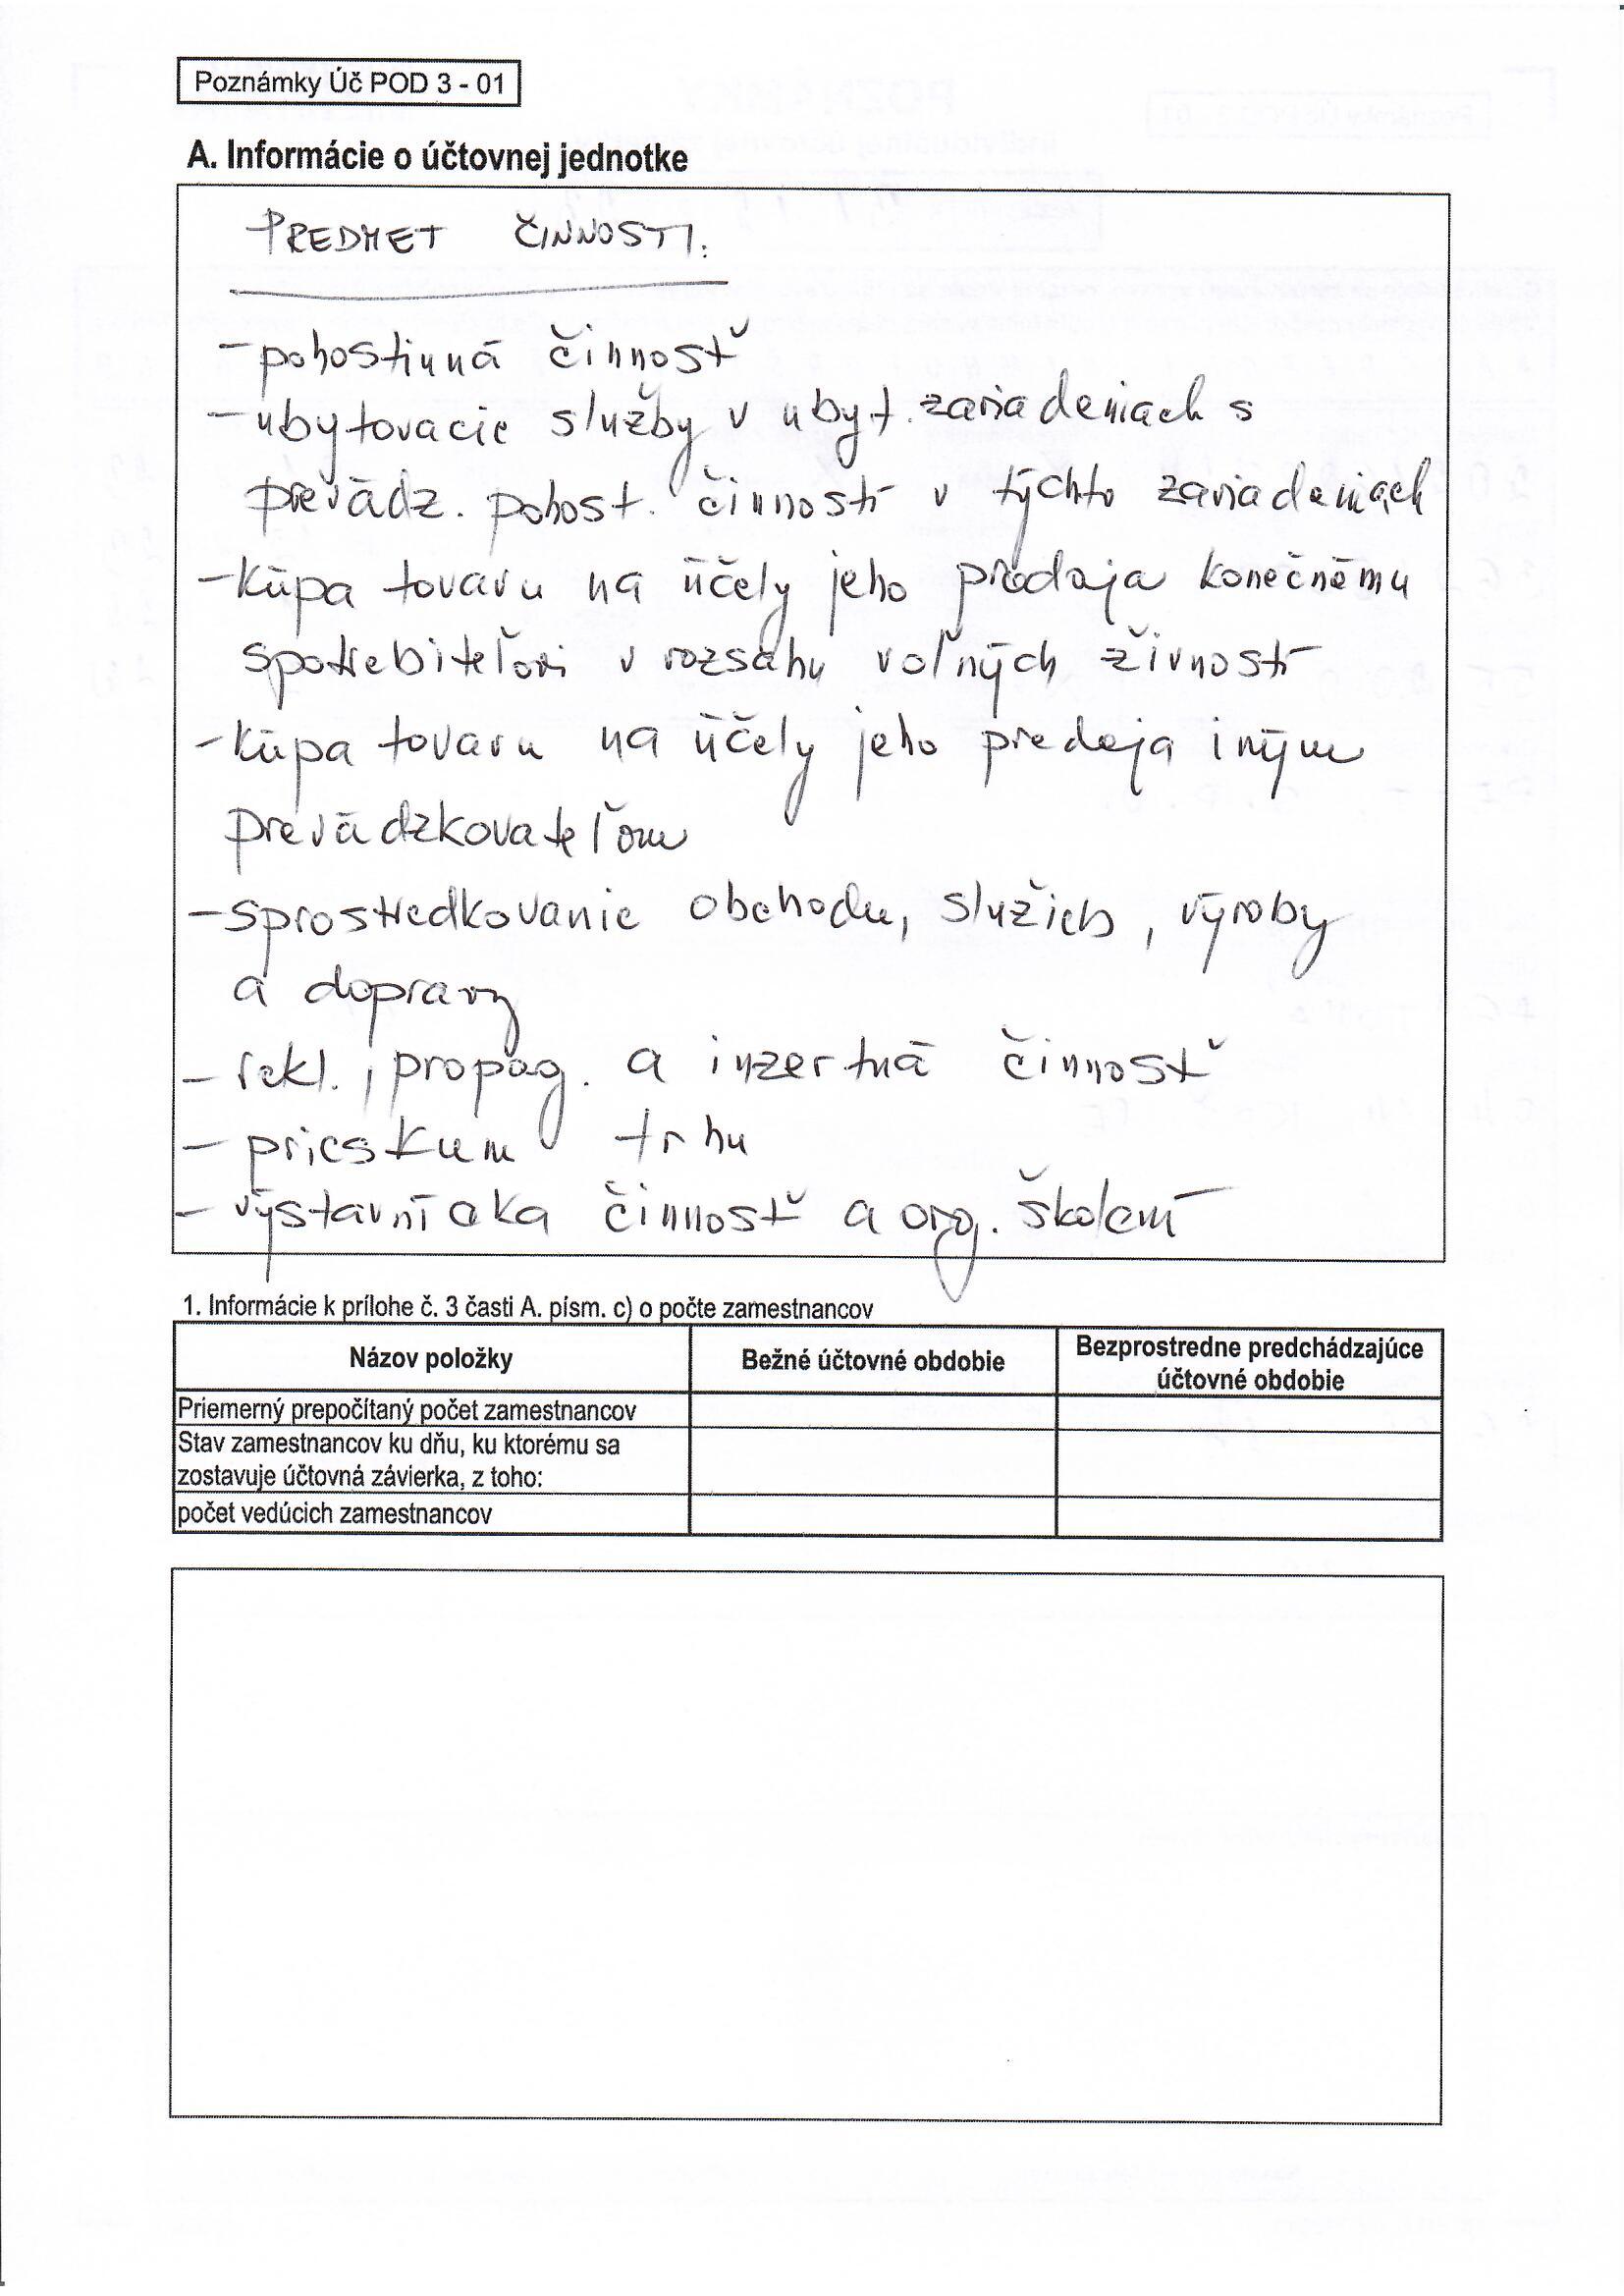 Poznámky Úč POD 3 - 01
A. Informácie o účtovnej jednotke
PREDMET ČINNOSTI:
- pohostinná činnosť
- ubytovacie služby v ubyt. zariadeniach s
prevádz. pohost. činnosti v týchto zariadeniach
- kúpa tovaru na účely jeho predaja konečnému
spotrebiteľovi v rozsahu voľných živností
- kúpa tovaru na účely jeho predaja iným
prevádzkovateľom
- sprostredkovanie obchodu, služieb, výroby
a dopravy
- rekl., propag. a inzertná činnosť
- prieskum trhu
- výstavnícka činnosť a org. školení
1. Informácie k prílohe č. 3 časti A. písm. c) o počte zamestnancov
Názov položky Bežné účtovné obdobie Bezprostredne predchádzajúce
účtovné obdobie
Priemerný prepočítaný počet zamestnancov
Stav zamestnancov ku dňu, ku ktorému sa
zostavuje účtovná závierka, z toho:
počet vedúcich zamestnancov